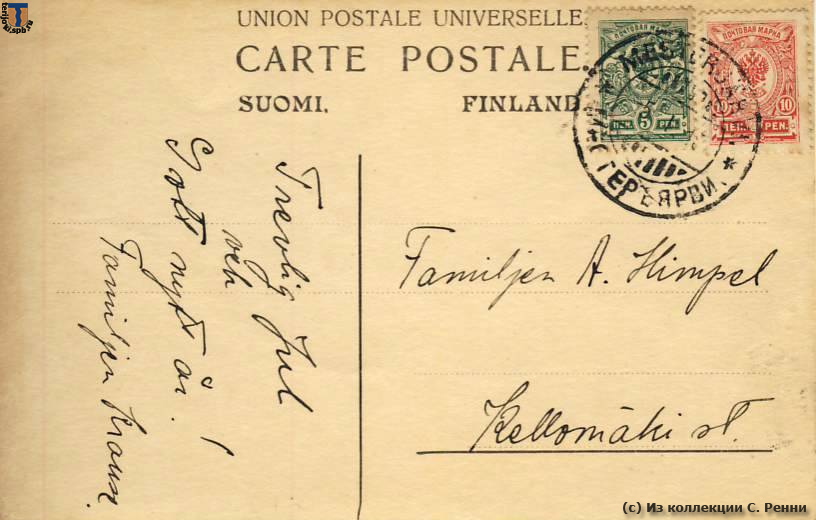 UNION POSTALE UNIVERSELLE.
CARTE POSTALE.
SUOMI. FINLAND.
ПОЧТОВАЯ МАРКА
5
ПЕН. PEN.
ПОЧТОВАЯ МАРКА
10 10
ПЕН. PEN.
Trevlig Jul
och
Gott nytt år!
Familjen Krause.
Familjen A. Himpel
Kellomäki st.
terijoki.spb.ru
(c) Из коллекции С. Ренни